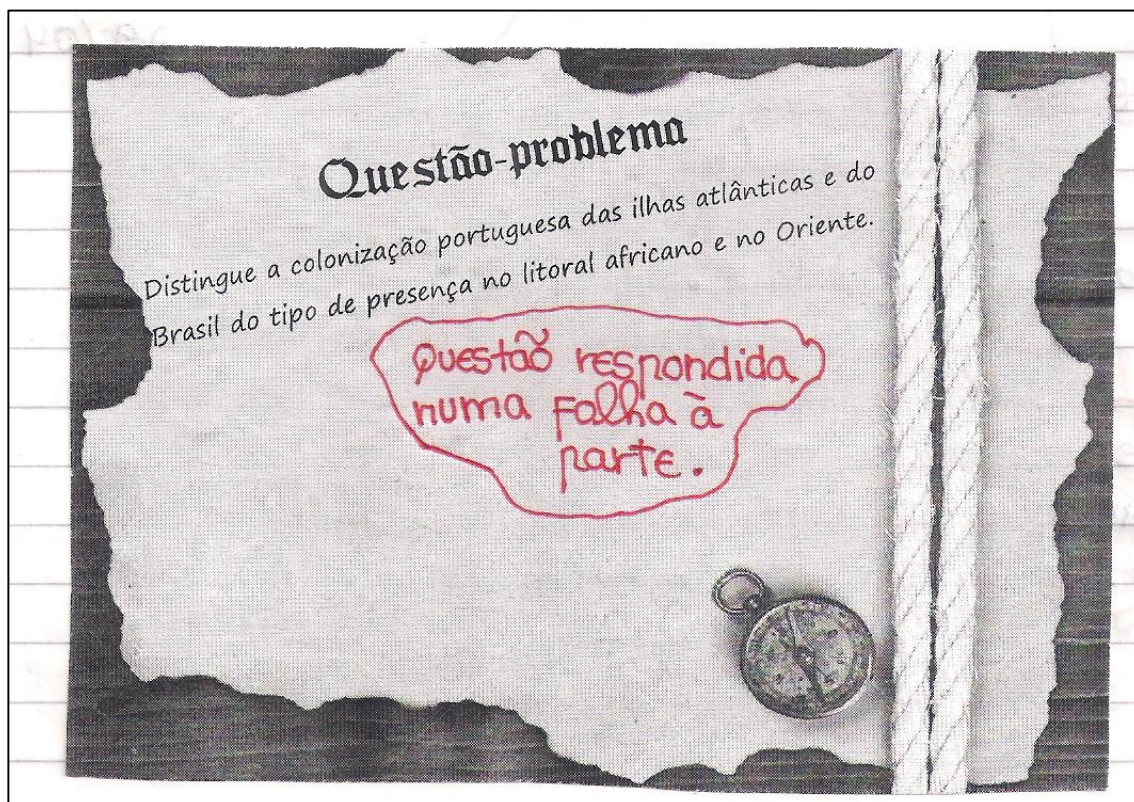 Questão-problema
Distingue a colonização portuguesa das ilhas atlânticas e do
Brasil do tipo de presença no litoral africano e no Oriente.
Questão respondida
numa folha à
parte.